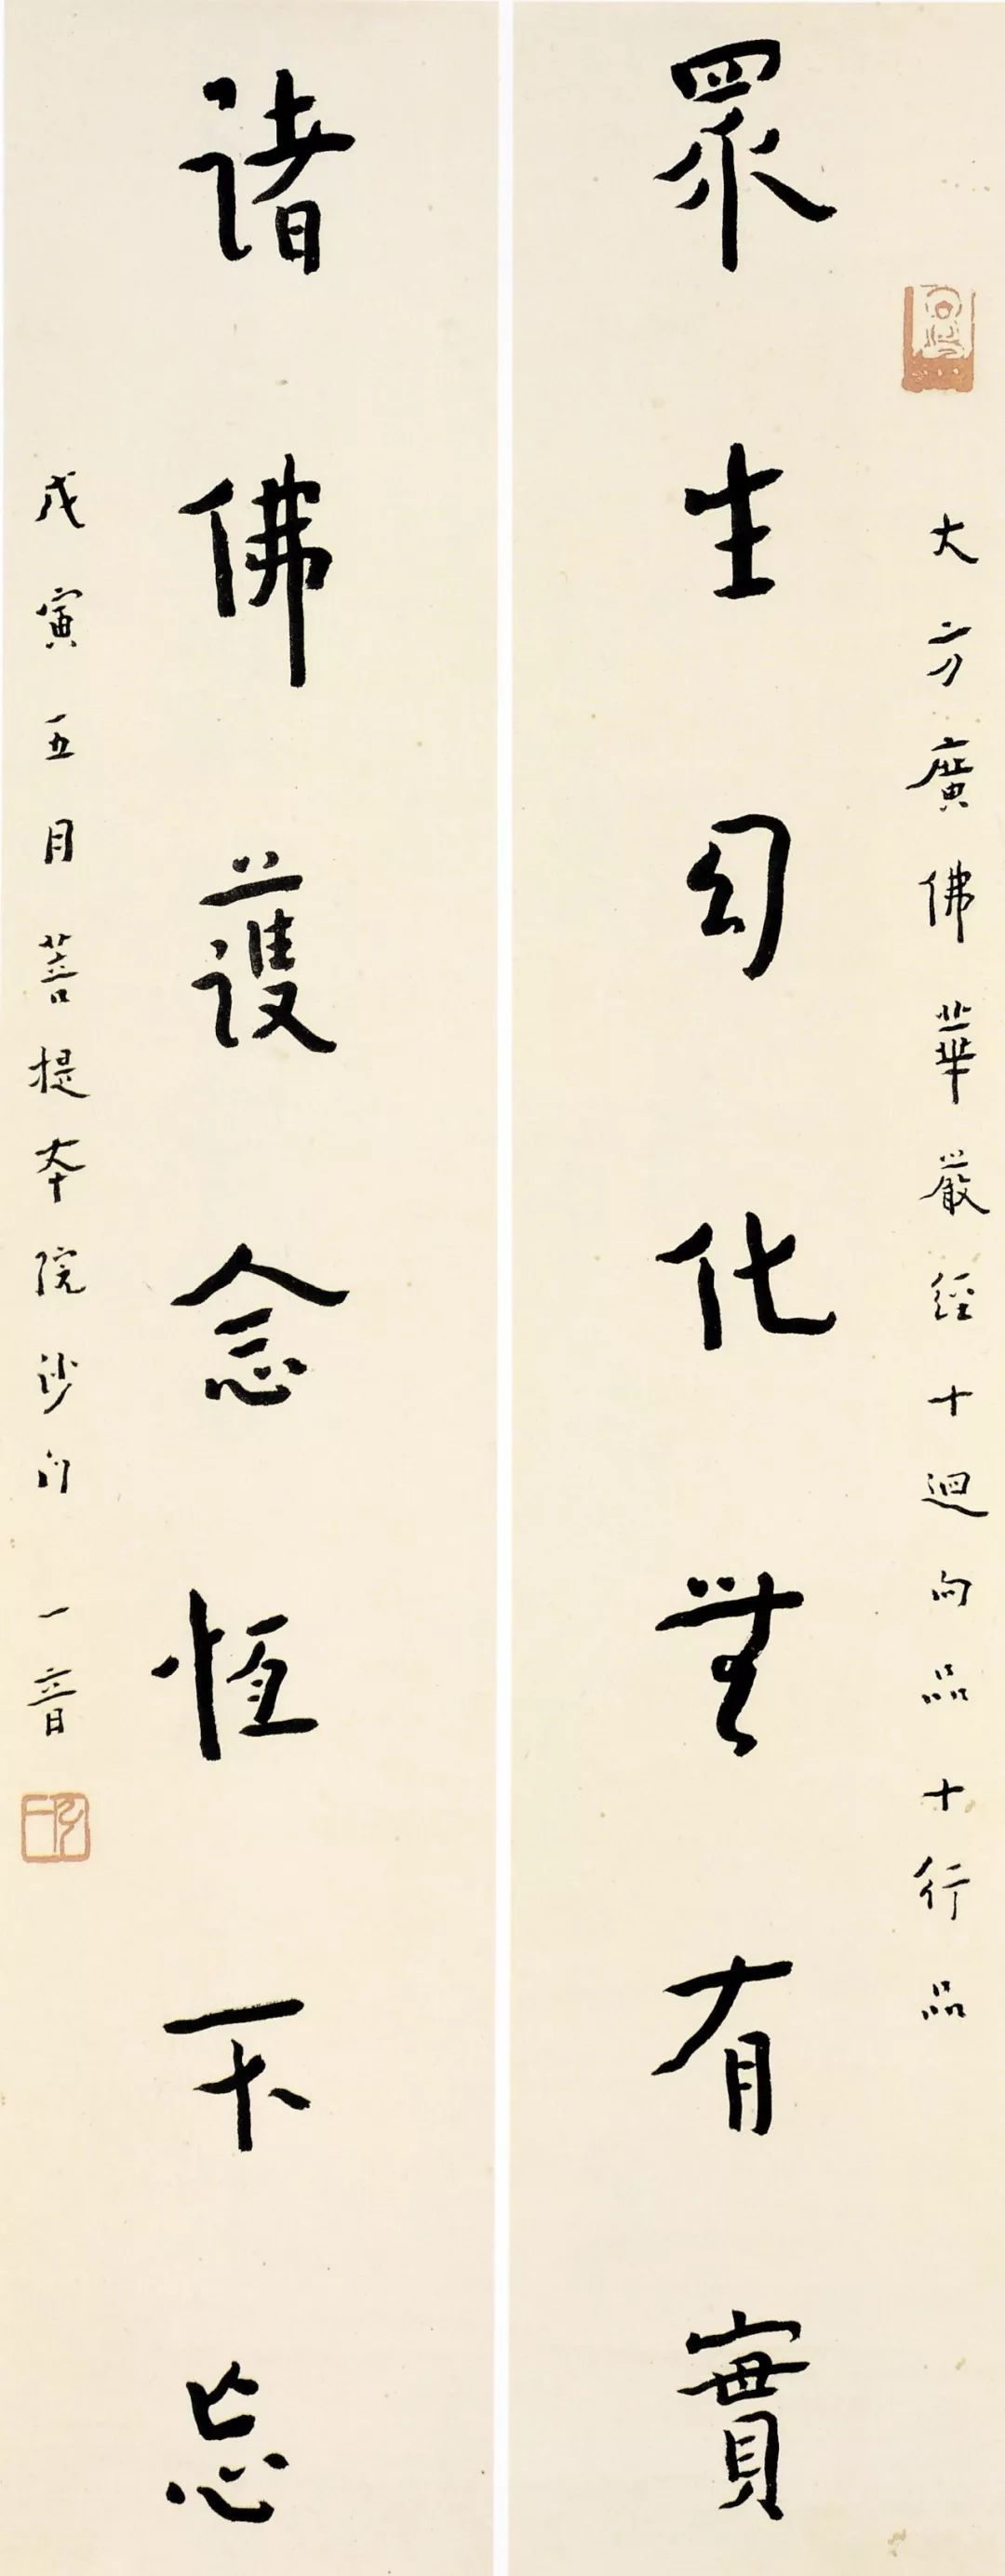 大方廣佛華嚴經十迴向品十行品
眾生幻化無有實
諸佛護念恒不忘
戊寅五月菩提本院沙門 一音
弘一